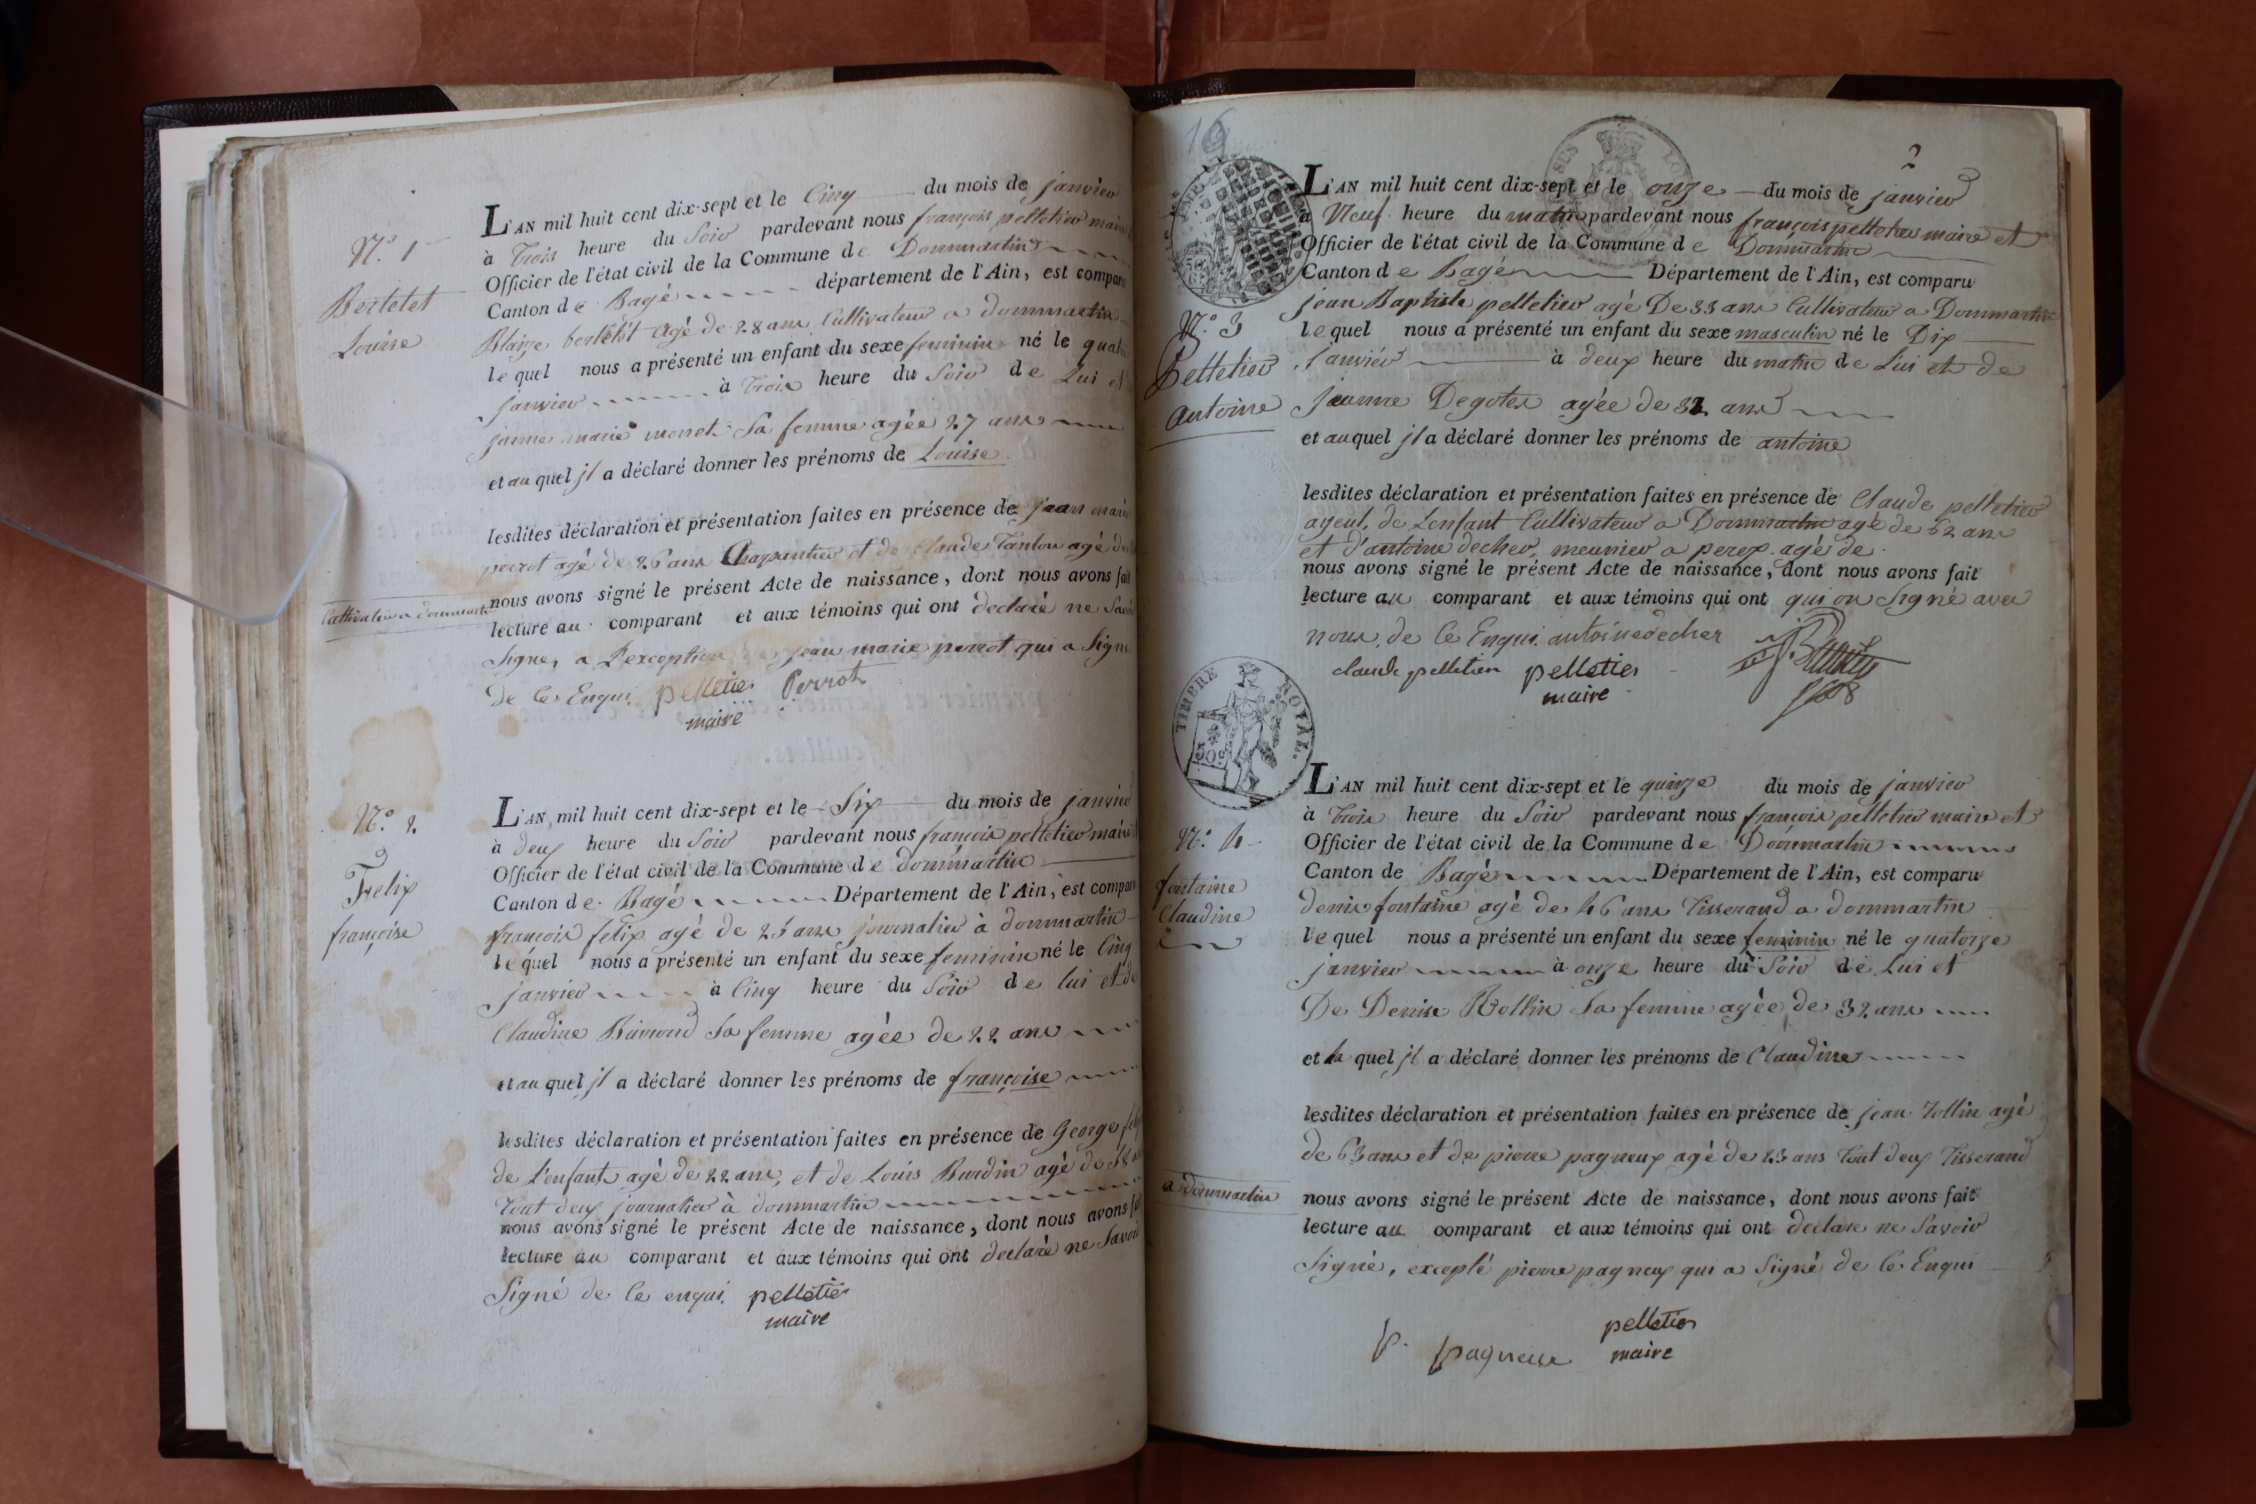 N.o 1
Bertelet
Louise
L'AN mil huit cent dix-sept et le Cinq du mois de janvier
à Trois heure du Soir pardevant nous françois pelletier maire
Officier de l'état civil de la Commune de Dommartin
Canton de Bagé département de l'Ain, est comparu
Blaize bertelet agé de 28 ans Cultivateur a dommartin
lequel nous a présenté un enfant du sexe feminin né le quatre
janvier à Trois heure du Soir de Lui et
jeanne marie monet Sa femme agée 27 ans
et au quel jl a déclaré donner les prénoms de Louise
lesdites déclaration et présentation faites en présence de jean marie
perrot agé de 26 ans Charpantier et de Claude Tantou agé de
Cultivateur a dommartin
nous avons signé le présent Acte de naissance, dont nous avons fait
lecture au comparant et aux témoins qui ont declaré ne Savoir
Signe, a L'exception de jean marie perrot qui a Signe
De Ce Enqui pelletier Perrot
maire
N.o 2.
Felix
françoise
L'AN mil huit cent dix-sept et le Six du mois de janvier
à deux heure du Soir pardevant nous françois pelletier maire
Officier de l'état civil de la Commune de dommartin
Canton de Bagé Département de l'Ain, est comparu
françois felix agé de 25 ans journalier à dommartin
lequel nous a présenté un enfant du sexe feminin né le Cinq
janvier à Cinq heure du Soir de lui et de
Claudine Sa femme agée de 22 ans
et au quel jl a déclaré donner les prénoms de françoise
lesdites déclaration et présentation faites en présence de George
de L'enfant agé de 22 ans, et de Louis Burdin agé de
Tout deux journalier à dommartin
nous avons signé le présent Acte de naissance, dont nous avons fait
lecture au comparant et aux témoins qui ont declaré ne Savoir
Signé de Ce enqui. pelletier
maire
16
2
L'AN mil huit cent dix-sept et le onze du mois de janvier
à Neuf heure du matin pardevant nous françois pelletier maire et
Officier de l'état civil de la Commune de Dommartin
Canton de Bagé Département de l'Ain, est comparu
jean Baptiste pelletier agé De 33 ans Cultivateur a Dommartin
N.o 3
Pelletier
antoine
lequel nous a présenté un enfant du sexe masculin né le Dix
Janvier à deux heure du matin de Lui et de
jeanne Degotex agée de 32 ans
et auquel jl a déclaré donner les prénoms de antoine
lesdites déclaration et présentation faites en présence de Claude pelletier
ayeul, de L'enfant Cultivateur a Dommartin agé de 62 ans
et d'antoine decher, meunier a perex agé de
nous avons signé le présent Acte de naissance, dont nous avons fait
lecture au comparant et aux témoins qui ont qui on Signé avec
nous, de Ce Enqui antoine decher
claude pelletier pelletier
maire
TIMBRE ROYAL.
50c
L'AN mil huit cent dix-sept et le quinze du mois de janvier
à Trois heure du Soir pardevant nous françois pelletier maire et
N.o 4
fontaine
Claudine
Officier de l'état civil de la Commune de Dommartin
Canton de Bagé Département de l'Ain, est comparu
denis fontaine agé de 46 ans Tisserand a dommartin
lequel nous a présenté un enfant du sexe feminin né le quatorze
janvier à onze heure du Soir de Lui et
De Denise Rollin Sa femme agée de 32 ans
et la quel jl a déclaré donner les prénoms de Claudine
lesdites déclaration et présentation faites en présence de jean Tollin agé
de 63 ans et de pierre pagneux agé de 23 ans Tout deux Tisserand
a dommartin
nous avons signé le présent Acte de naissance, dont nous avons fait
lecture au comparant et aux témoins qui ont declare ne Savoir
Signé, excepté pierre pagneux qui a Signé de Ce Enqui
p. pagneux pelletier
maire